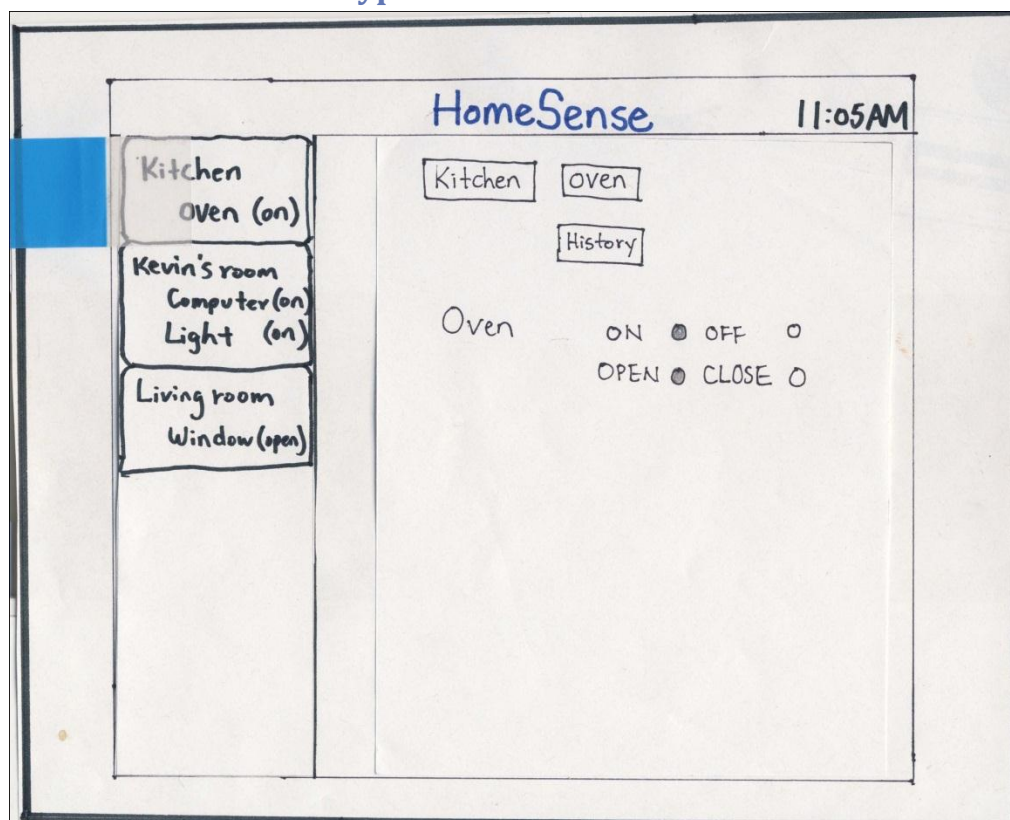 HomeSense 11:05AM
Kitchen
Oven (on)
Kevin's room
Computer (on)
Light (on)
Living room
Window (open)
Kitchen Oven
History
Oven ON OFF
OPEN CLOSE